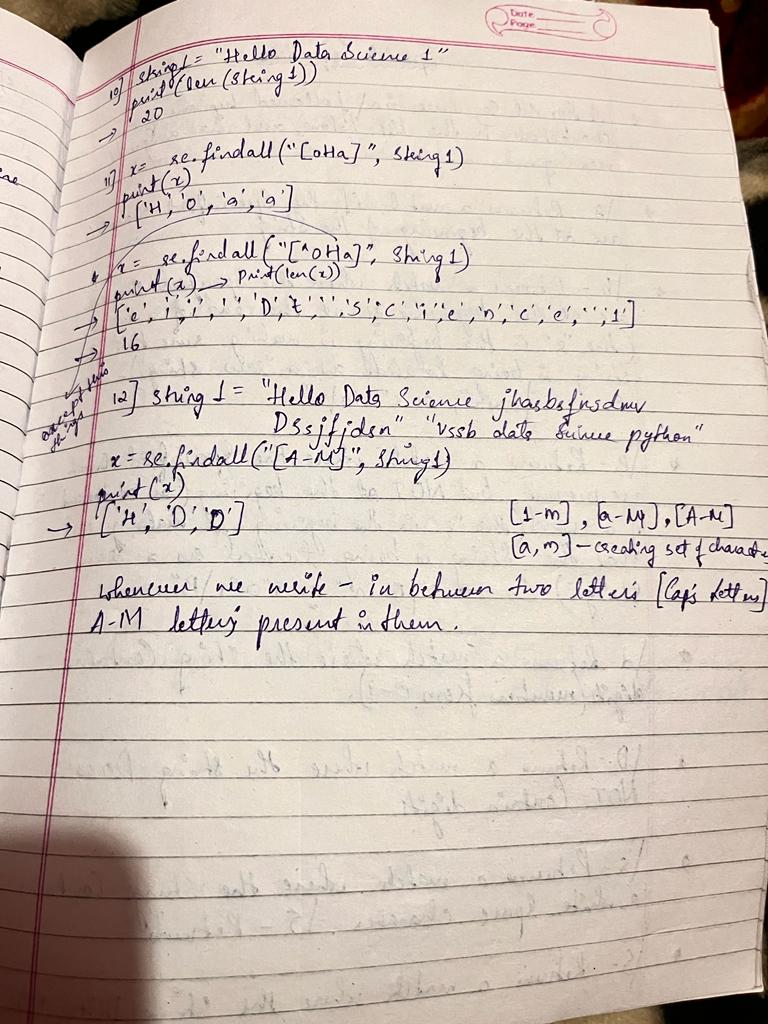 Date
Page
10] String1 = "Hello Data Science 1"
print(len(String1))
→ 20
11] x= re.findall("[oHa]", String1)
print(x)
→ ['H', 'o', 'a', 'a']
x= re.findall("[^oHa]", String1)
print(x) → print(len(x))
→ ['e', 'l', 'l', ' ', 'D', 't', ' ', 'S', 'C', 'i', 'e', 'n', 'c', 'e', ' ', '1']
→ 16
except this things
12] String 1 = "Hello Data Science jhasbsfnsdmv
Dssjfjdsn" "vssb data Science python"
x= re.findall("[A-M]", String1)
print('x')
→ ['H', 'D', 'D']
[1-m], [a-M], [A-M]
[a,m] - creating set of characte
whenever we write - in between two letters [Cap's letters]
A-M letters present in them.